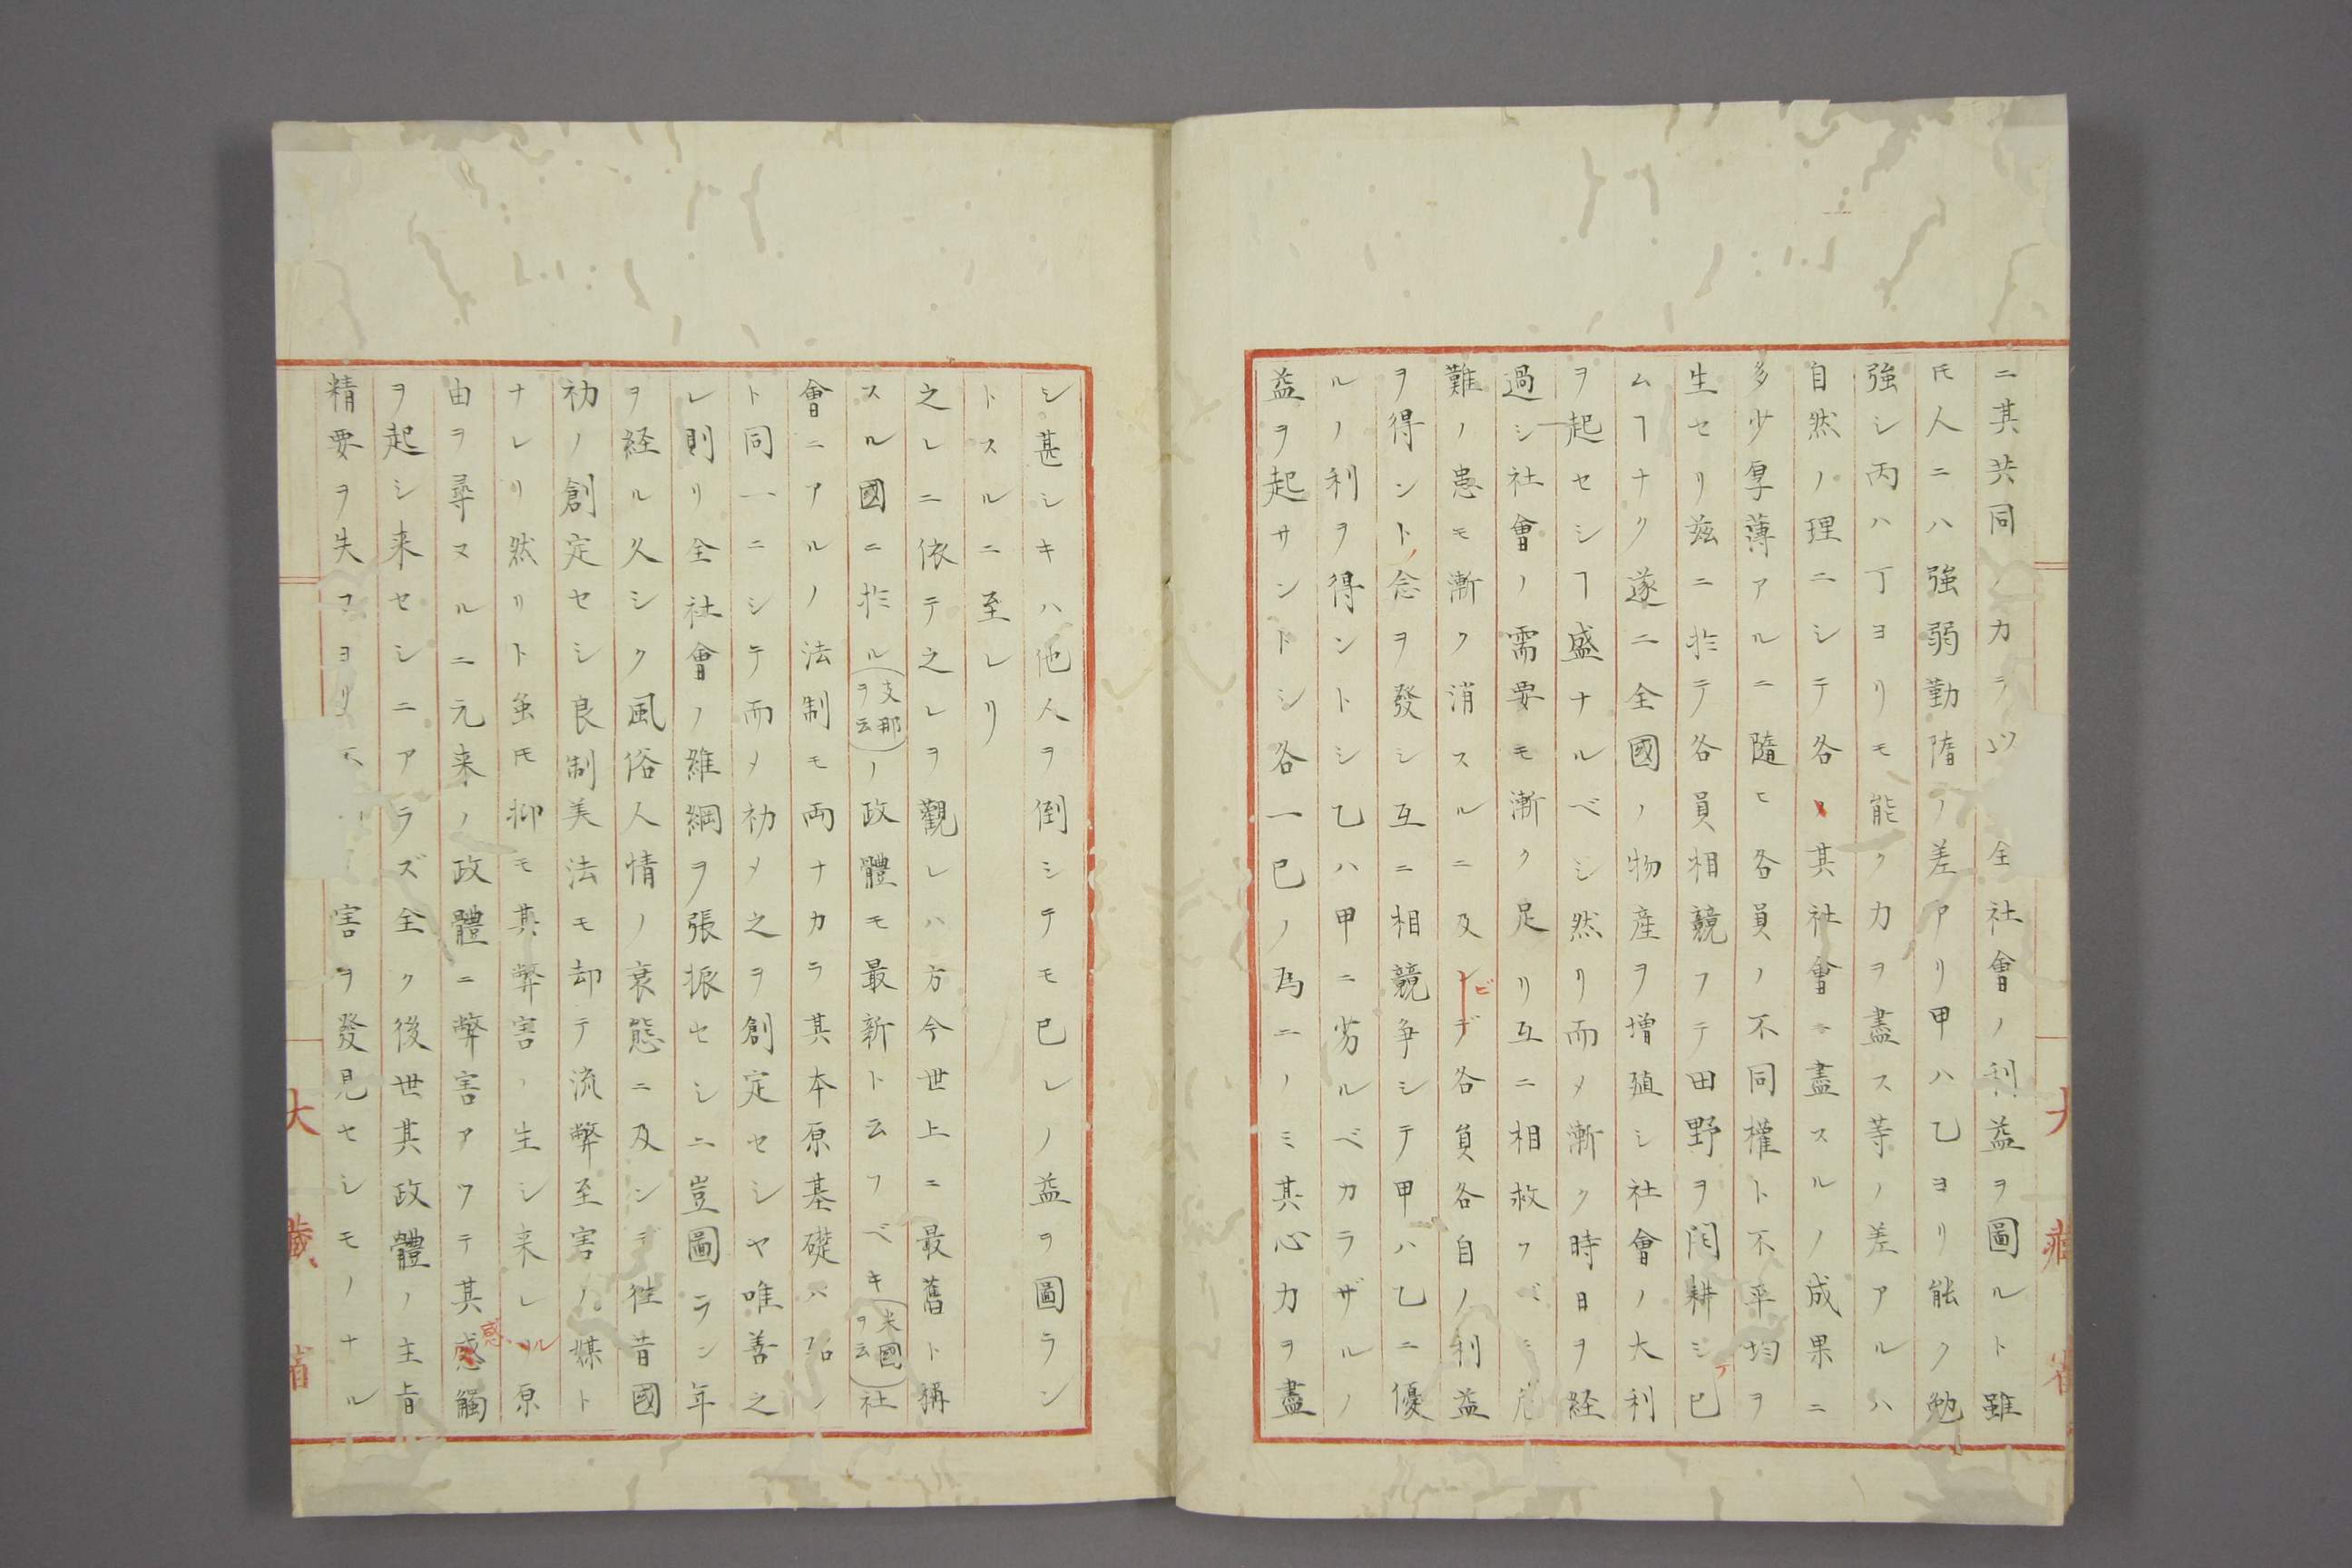 ニ其共同ノ力ヲ以 全社會ノ利益ヲ圖ルト雖
𪜈人ニハ強弱勤惰ノ差アリ甲ハ乙ヨリ能ク勉
強シ丙ハ丁ヨリモ能ク力ヲ盡ス等ノ差アルハ
自然ノ理ニシテ各々其社會ニ盡スルノ成果ニ
多少厚薄アルニ隨ヒ各員ノ不同權ト不平均ヲ
生セリ茲ニ於テ各員相競フテ田野ヲ開耕シテ已
ムヿナク遂ニ全國ノ物産ヲ増殖シ社會ノ大利
ヲ起セシヿ盛ナルベシ然リ而メ漸ク時日ヲ経
過シ社會ノ需要モ漸ク足リ互ニ相救フベシ
難ノ患モ漸ク消スルニ及ビデ各員各自ノ利益
ヲ得ントノ念ヲ發シ互ニ相競争シテ甲ハ乙ニ優
ルノ利ヲ得ントシ乙ハ甲ニ劣ルベカラザルノ
益ヲ起サントシ各一已ノ為ニノミ其心力ヲ盡
シ甚シキハ他人ヲ倒シテモ已レノ益ヲ圖ラン
トスルニ至レリ
之レニ依テ之レヲ觀レハ方今世上ニ最舊ト稱
スル國ニ於ル(支那ヲ云)ノ政體モ最新ト云フベキ(米國ヲ云)社
會ニアルノ法制モ両ナカラ其本原基礎ハ殆ン
ト同一ニシテ而メ初メ之ヲ創定セシヤ唯善之
レ則リ全社會ノ維綱ヲ張振セシニ豈圖ラン年
ヲ経ル久シク風俗人情ノ衰態ニ及ンデ往昔國
初ノ創定セシ良制美法モ却テ流弊至害ノ媒ト
ナレリ然リト虽𪜈抑モ其弊害ノ生シ来レル原
由ヲ尋ヌルニ元来ノ政體ニ弊害アツテ其惑觸
ヲ起シ来セシニアラズ全ク後世其政體ノ主旨
精要ヲ失フヨリ 害ヲ發見セシモノナル
大藏省
大藏省